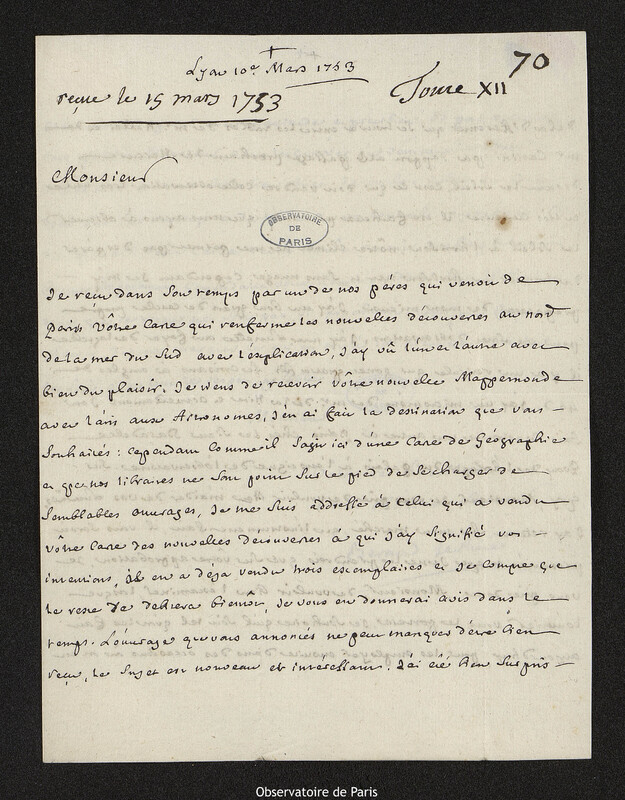 70
Lyon 10e Mars 1753
reçue le 15 mars 1753
Tome XII
Monsieur
OBSERVATOIRE
DE
PARIS
Je reçu dans son temps par un de nos péres qui venoit de
Paris vôtre Carte qui renferme les nouvelles découvertes au nord
de la mer du Sud avec l'explication, j'ay vû l'un et l'autre avec
bien du plaisir. Je viens de recevoir vôtre nouvelle Mappemonde
avec l'avis aux Astronomes, j'en ai fait la destination que vous
souhaités: cependant comme il s'agit ici d'une Carte de Géographie
et que nos libraires ne sont point sur le pied de se charger de
semblables ouvrages, je me suis addressé à celui qui a vendu
vôtre Carte des nouvelles découvertes à qui j'ay signifié vos
intentions, il en a déja vendu trois exemplaires et je compte que
le reste se debitera bientôt, je vous en donnerai avis dans le
temps. L'ouvrage que vous annoncés ne peut manquer d'être bien
reçu, le sujet est nouveau et intéressant. J'ai été bien surpris
Observatoire de Paris